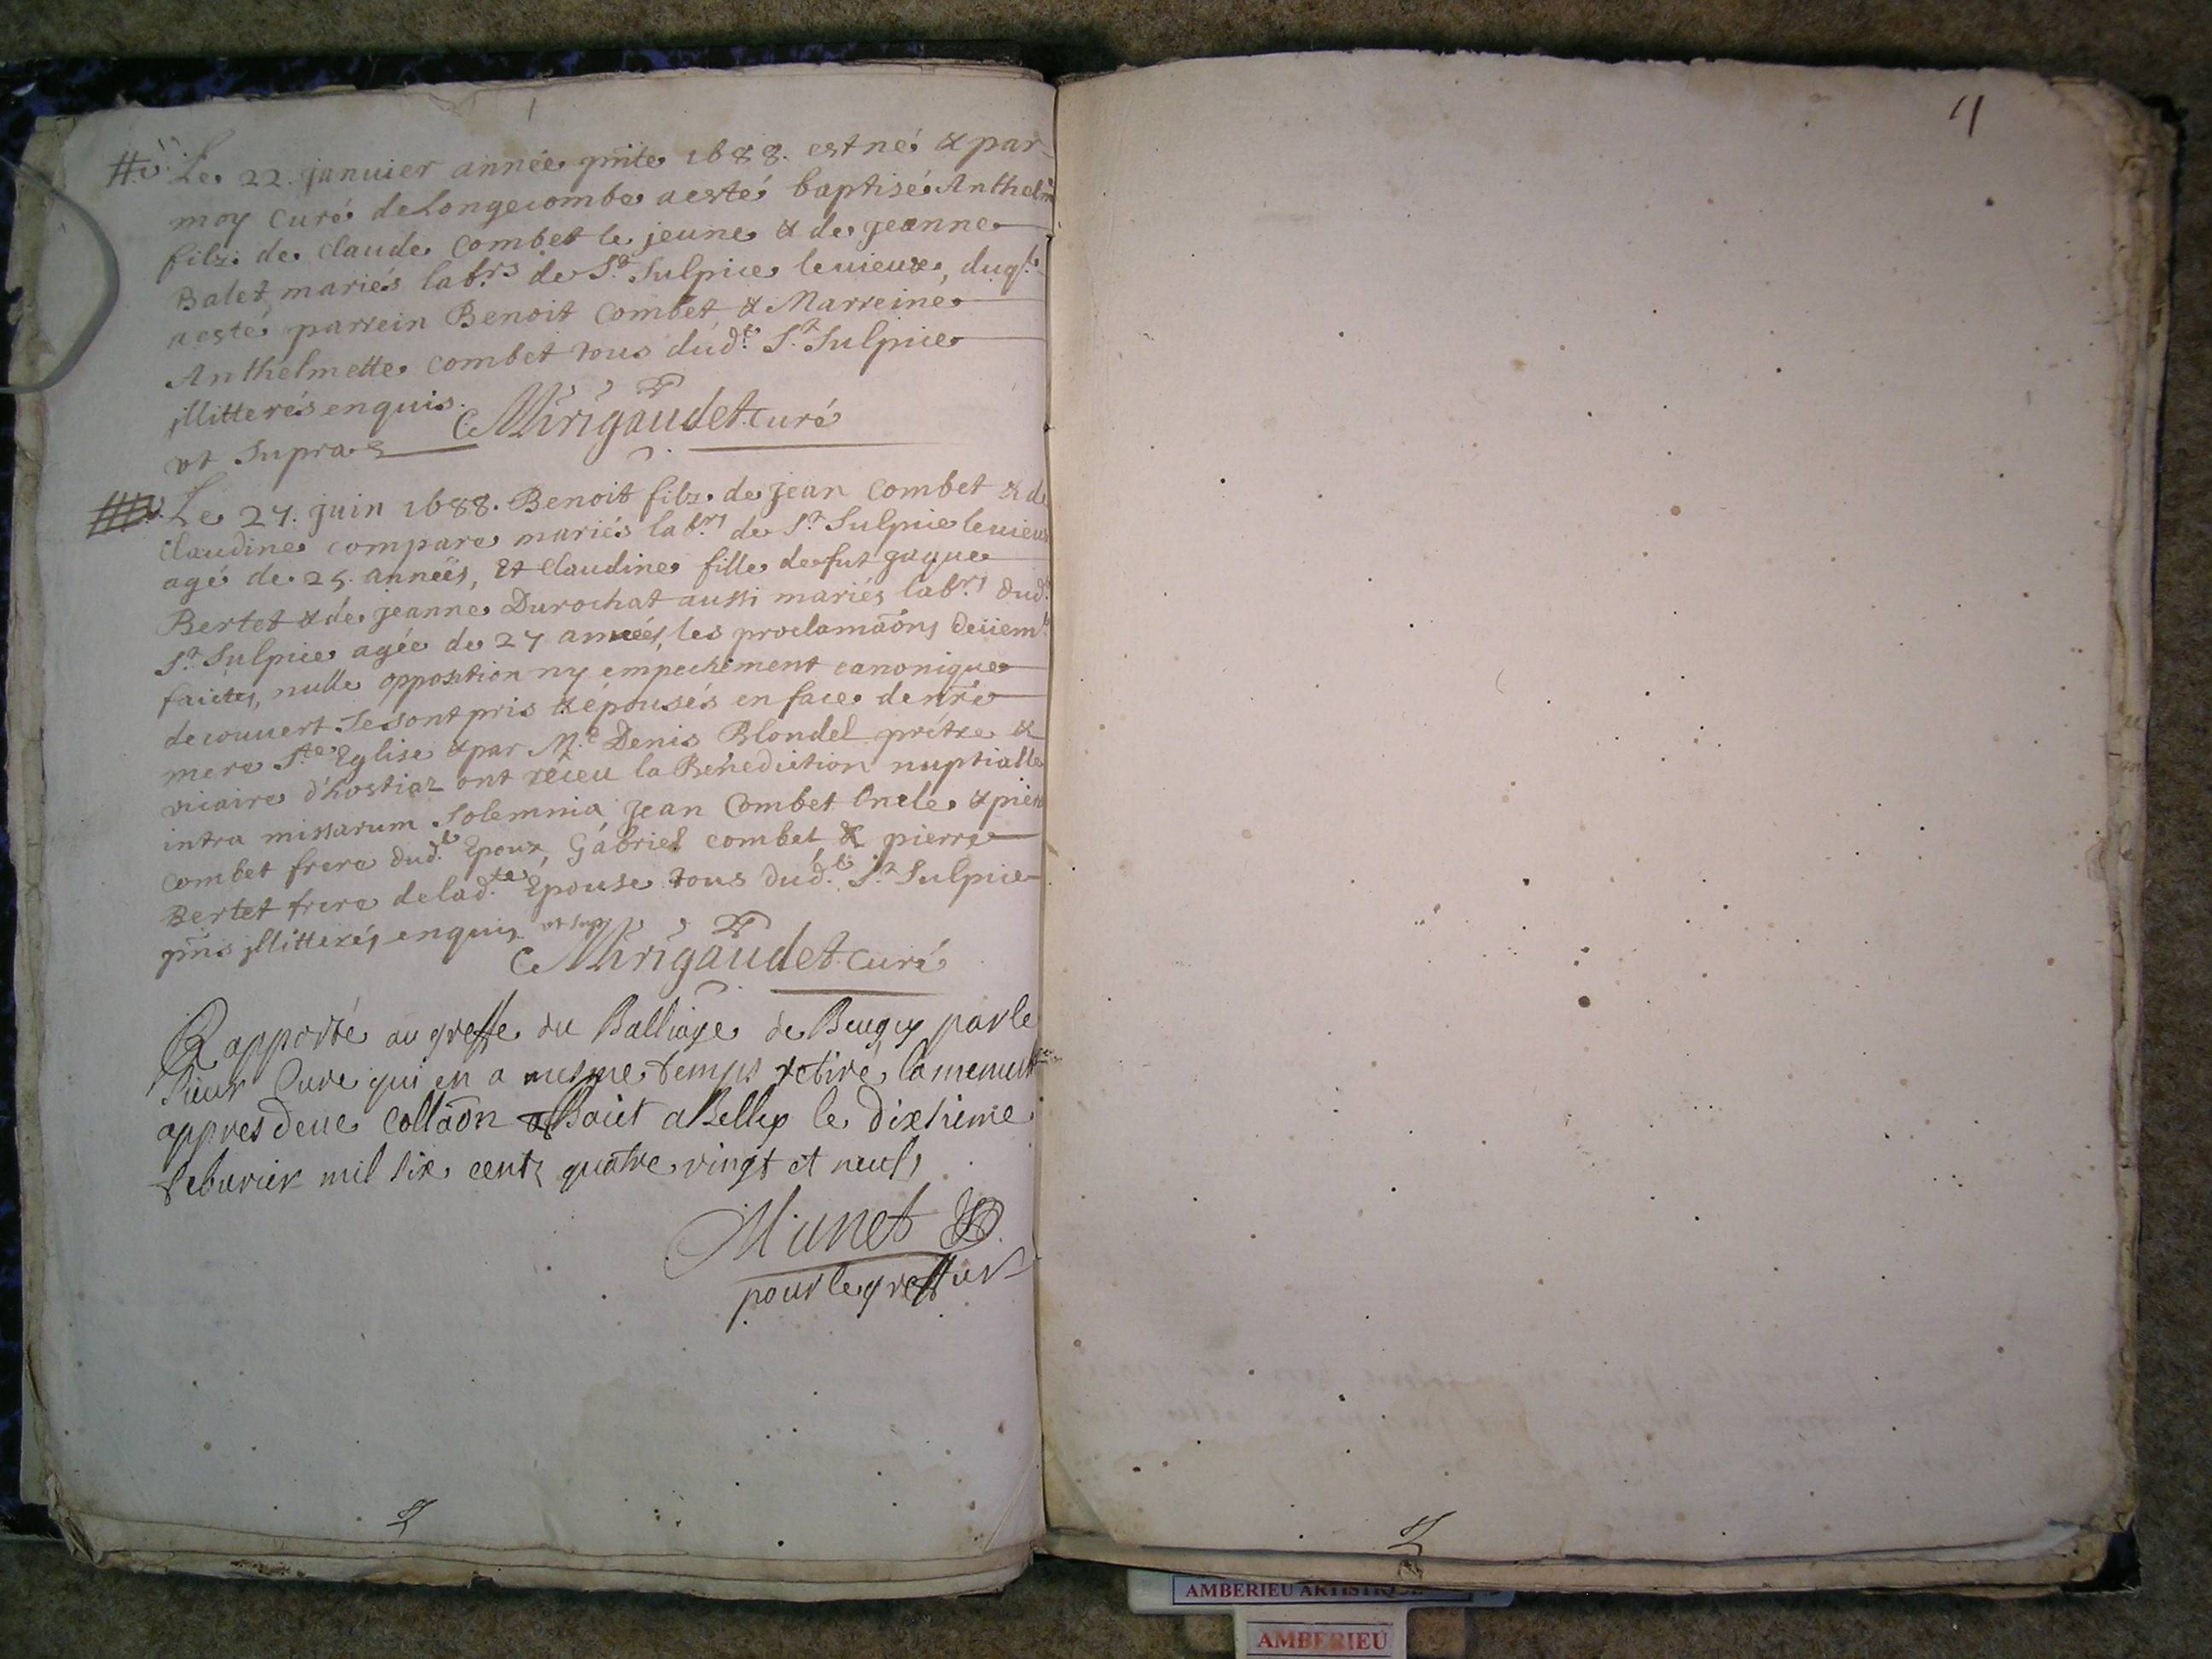 Le 22. januier année pnte 1688. est né & par
moy Curé de Longecombe a esté baptisé Anthelme
filz de Claude Combet le jeune & de jeanne
Balet mariés labrs de St Sulpice le uieux, duql
a esté parrein Benoit Combet & Marreine
Anthelmette Combet tous dudt St Sulpice
illitterés enquis.
ut Supra
Mrigaudet Curé
Le 27. juin 1688. Benoit filz de Jean Combet & de
Claudine compare mariés labrs de St Sulpice le uieux
agé de 25. années, Et Claudine fille de fut jaque
Bertet & de jeanne Durochat aussi mariés labrs dudt
St Sulpice agée de 27 années, les proclamaõns deüemt
faictes, nulle opposition ny empechement canonique
decouuert Se sont pris & épousés en face de nre
mere Ste Eglise & par Mre Denis Blondel prêtre &
vicaire d'hostiaz ont réceu la Bénédiction nuptialle
intra missarum Solemnia jean Combet Oncle & pierre
Combet frere dudt Epoux, Gabriel combet & pierre
Bertet frere de ladte Epouse tous dudt St Sulpice
pnts illitterés enquis ut supr
Mrigaudet Curé
Rapporté au greffe du Balliage de Beugey par le
Sieur Cure qui en a mesme temps retiré la menutte
appres deue Collaõn Baict a Belley le dixhieme
feburier mil six centz quatre vingt et neuf,
Munet
pour le greffier
11
AMBERIEU ARTISTIQUE
AMBERIEU